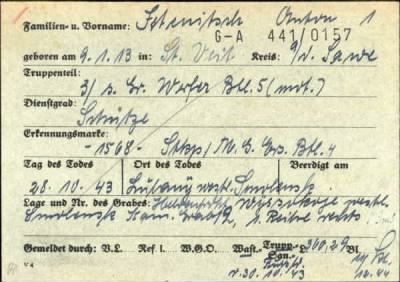 Familien- u. Vorname: Anton 1
G-A 441/0157
geboren am 9.1.13 in: St. Veit Kreis: a/d. Sawe
Truppenteil:
3/ s. Gr. Werfer Btl. 5 (mot.)
Dienstgrad:
Schütze
Erkennungsmarke:
-1568- Stkp/M.G. Ers. Btl. 4
Tag des Todes Ort des Todes Beerdigt am
28.10.43 westl. Smolensk
Lage und Nr. des Grabes: Heldenfrdhf. westl.
Smolensk 1. Reihe rechts
Gemeldet durch: V.L. Ref I. W.G.O. Wast. Trupp. L. 360,29 Bl.
v. 30.10.43 12.44